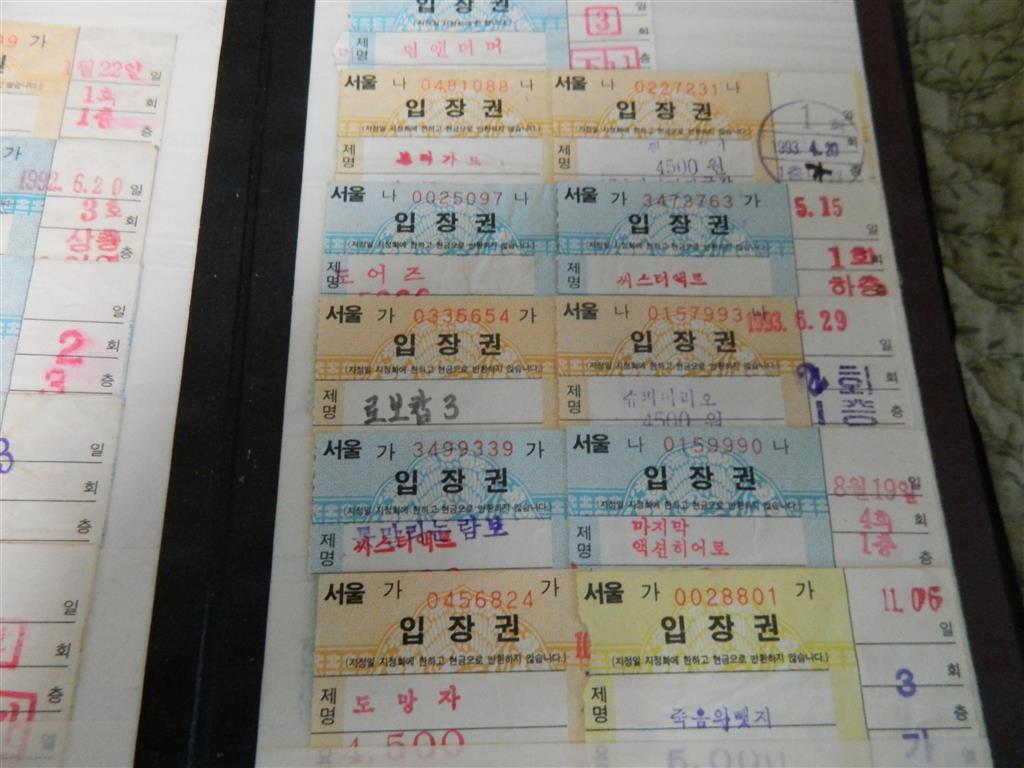 가
1월 22일 일
1회 회
1층 층
가
1992. 6. 20 일
3호 회
상층 층
일
2 회
층
3 일
회
층
일
회
층
(지정일 지정회에 한하고 현금으로 반환하지 않습니다.)
일
3 회
층
제명
서울 나 0481088 나
입장권
(지정일 지정회에 한하고 현금으로 반환하지 않습니다.)
제명
서울 나 0227231 나
입장권
(지정일 지정회에 한하고 현금으로 반환하지 않습니다.)
제명
4500 원
1 회
1993. 4. 20
서울 나 0025097 나
입장권
(지정일 지정회에 한하고 현금으로 반환하지 않습니다.)
제명 도어즈
서울 가 3473763 가
입장권
(지정일 지정회에 한하고 현금으로 반환하지 않습니다.)
제명 씨스터액트
5.15 일
1회 회
하층 층
서울 가 0335654 가
입장권
(지정일 지정회에 한하고 현금으로 반환하지 않습니다.)
제명 로보캅 3
서울 나 0157993 나
입장권
(지정일 지정회에 한하고 현금으로 반환하지 않습니다.)
제명 슈퍼마리오
4500 원
1993. 6. 29
일
2 회
1 층
서울 가 3499339 가
입장권
(지정일 지정회에 한하고 현금으로 반환하지 않습니다.)
제명 씨스터액트
서울 나 0159990 나
입장권
(지정일 지정회에 한하고 현금으로 반환하지 않습니다.)
제명 마지막
액션히어로
8월 19일 일
4회 회
1층 층
서울 가 0456824 가
입장권
(지정일 지정회에 한하고 현금으로 반환하지 않습니다.)
제명 도망자
4,500
서울 가 0028801 가
입장권
(지정일 지정회에 한하고 현금으로 반환하지 않습니다.)
제명 죽음의뺏지
5,000
11. 06
일
3 회
층
가